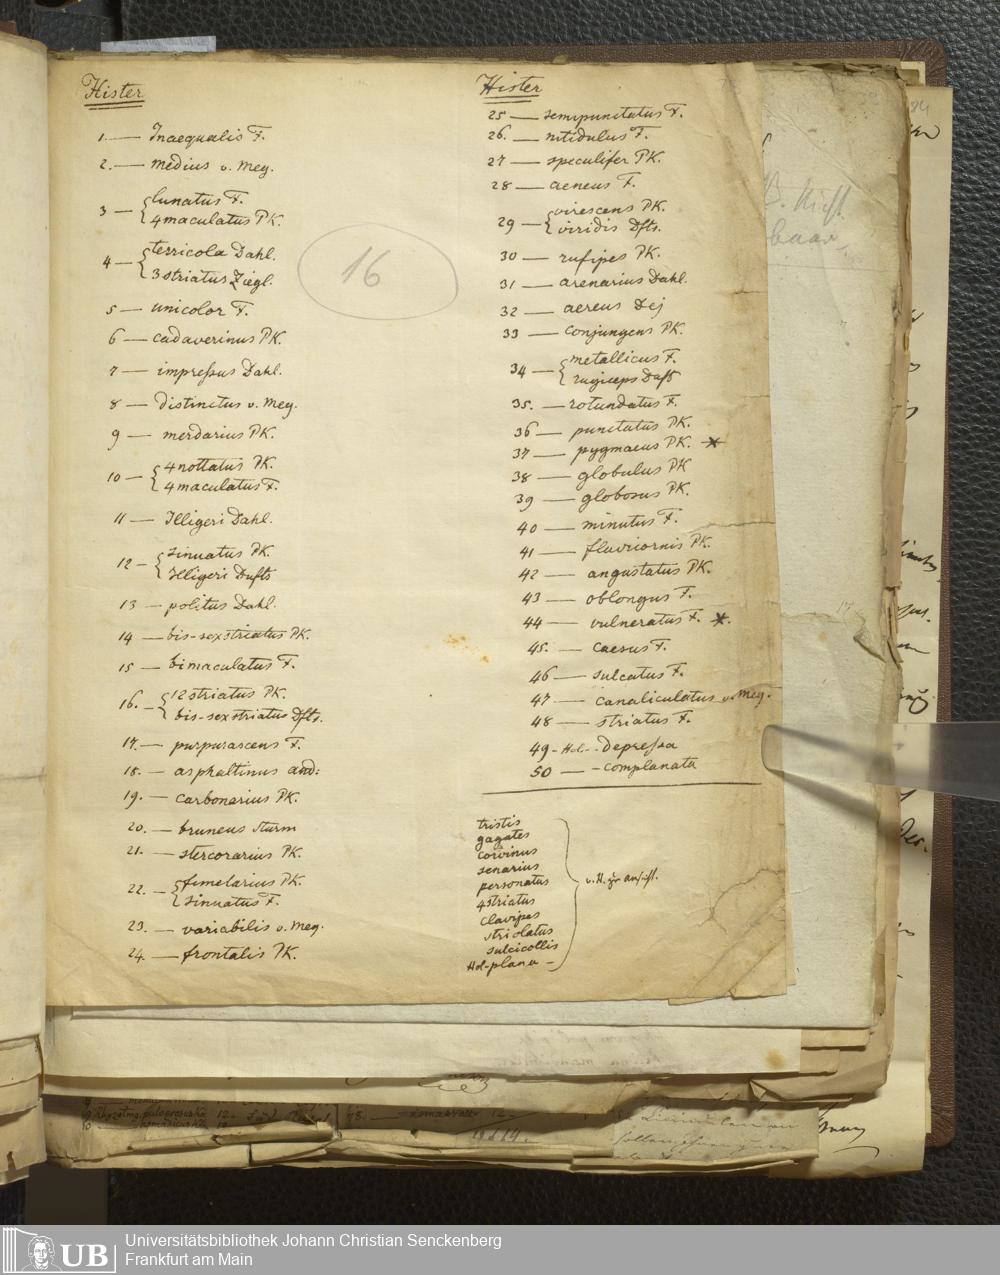 Hister
1. — Inaequalis F.
2. — medius v. Meg.
3 — lunatus F.
4maculatus PK.
4 — terricola Dahl.
3striatus Ziegl.
5 — unicolor F.
6 — cadaverinus PK.
7 — impreſsus Dahl.
8 — distinctus v. Meg.
9 — merdarius PK.
10 — 4nottatus PK.
4maculatus F.
11 — Illigeri Dahl.
12 — sinuatus PK.
Illigeri Dufts
13 — politus Dahl.
14 — bis-sexstriatus PK.
15 — bimaculatus F.
16. — 12striatus PK.
bis-sexstriatus Dfts.
17. — purpurascens F.
18. — asphaltinus and:
19. — carbonarius PK.
20. — bruneus Sturm
21. — stercorarius PK.
22. — fimetarius PK.
sinuatus F.
23. — variabilis v. Meg.
24. — frontalis PK.
16
Hister
25 — semipunctatus F.
26. — nitidulus F.
27 — speculifer PK.
28 — aeneus F.
29 — virescens PK.
viridis Dfts.
30 — rufipes PK.
31 — arenarius Dahl.
32 — aereus Dej
33 — conjungens PK.
34 — metallicus F.
rugiceps Duft
35. — rotundatus F.
36 — punctatus PK.
37 — pygmaeus PK. *
38 — globulus PK
39 — globosus PK.
40 — minutus F.
41 — flavicornis PK.
42 — angustatus PK.
43 — oblongus F.
44 — vulneratus F. *.
45. — caesus F.
46 — sulcatus F.
47 — canaliculatus v. Meg.
48 — striatus F.
49 - Hol- - Depreſsa
50 — - complanata
tristis
gagates
corvinus
senarius
personatus
4striatus
clavipes
striolatus
sulcicollis
Hol-plana —
v. H. zur ansicht.
Universitätsbibliothek Johann Christian Senckenberg
Frankfurt am Main
UB